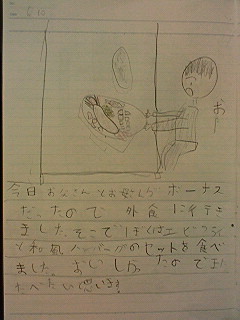 お〜
今日おかさんとお父さんが ボーナス
だったので 外食に行き
ました。そこでぼくはエビフライ
と和風ハンバーグのセットを食べ
ました。おいしかったのでまた
たべたいと思います。